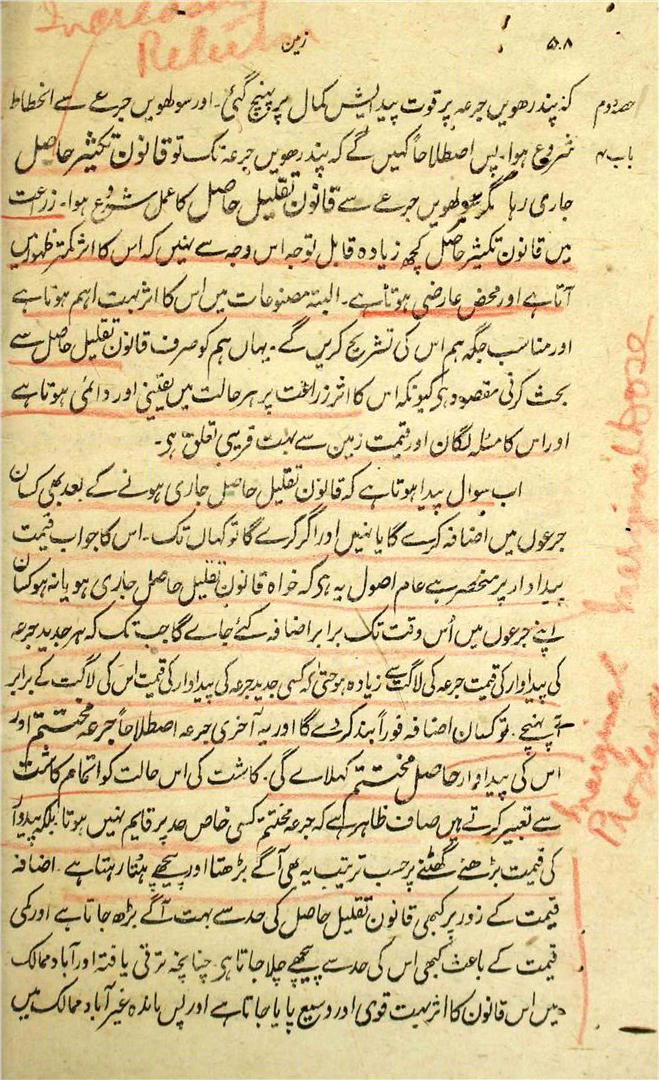 Increasing
Return
زمین
۵۰۸
حصہ دوم
باب ۴
کہ پندرھویں جرعہ پر قوت پیدایش کمال پر پہنچ گئی۔ اور سولھویں جرعے سے انحطاط
شروع ہوا۔ پس اصطلاحاً کہیں گے کہ پندرھویں جرعہ تک تو قانون تکثیر حاصل
جاری رہا مگر سولھویں جرعے سے قانون تقلیل حاصل کا عمل شروع ہوا۔ زراعت
میں قانون تکثیر حاصل کچھ زیادہ قابل توجہ اس وجہ سے نہیں کہ اس کا اثر کمتر ظہور میں
آتا ہے اور محض عارضی ہوتا ہے۔ البتہ مصنوعات میں اس کا اثر بہت اہم ہوتا ہے
اور مناسب جگہ ہم اس کی تشریح کریں گے۔ یہاں ہم کو صرف قانون تقلیل حاصل سے
بحث کرنی مقصود ہے کیونکہ اس کا اثر زراعت پر ہر حالت میں یقینی اور دائمی ہوتا ہے
اور اس کا مسئلہ لگان اور قیمت زمین سے بہت قریبی تعلق ہے۔
اب سوال پیدا ہوتا ہے کہ قانون تقلیل حاصل جاری ہونے کے بعد بھی کسان
جرعوں میں اضافہ کرے گا یا نہیں اور اگر کرے گا تو کہاں تک۔ اس کا جواب قیمت
پیداوار پر منحصر ہے عام اصول یہ ہے کہ خواہ قانون تقلیل حاصل جاری ہو یا نہ ہو کسان
اپنے جرعوں میں اُس وقت تک برابر اضافہ کئے جاے گا جب تک کہ ہر جدید جرعہ
کی پیداوار کی قیمت جرعہ کی لاگت سے زیادہ ہو حتیٰ کہ کسی جدید جرعہ کی پیداوار کی قیمت اس کی لاگت کے برابر
آپہنچے۔ تو کسان اضافہ فوراً بند کر دے گا اور یہ آخری جرعہ اصطلاحاً جرعہ مختتم اور
اس کی پیداوار حاصل مختتم کہلاے گی۔ کاشت کی اس حالت کو اتمام کاشت
سے تعبیر کرتے ہیں صاف ظاہر ہے کہ جرعہ مختتم کسی خاص حد پر قایم نہیں ہوتا بلکہ پیداوار
کی قیمت بڑھنے گھٹنے پر حسب ترتیب یہ بھی آگے بڑھتا اور پیچھے ہٹتا رہتا ہے۔ اضافہ
قیمت کے زور پر کبھی قانون تقلیل حاصل کی حد سے بہت آگے بڑھ جاتا ہے اور کمی
قیمت کے باعث کبھی اس کی حد سے پیچھے چلا جاتا ہے۔ چنانچہ ترقی یافتہ اور آباد ممالک
میں اس قانون کا اثر بہت قوی اور وسیع پایا جاتا ہے اور پس ماندہ غیر آباد ممالک میں
Marginal Dose
Marginal